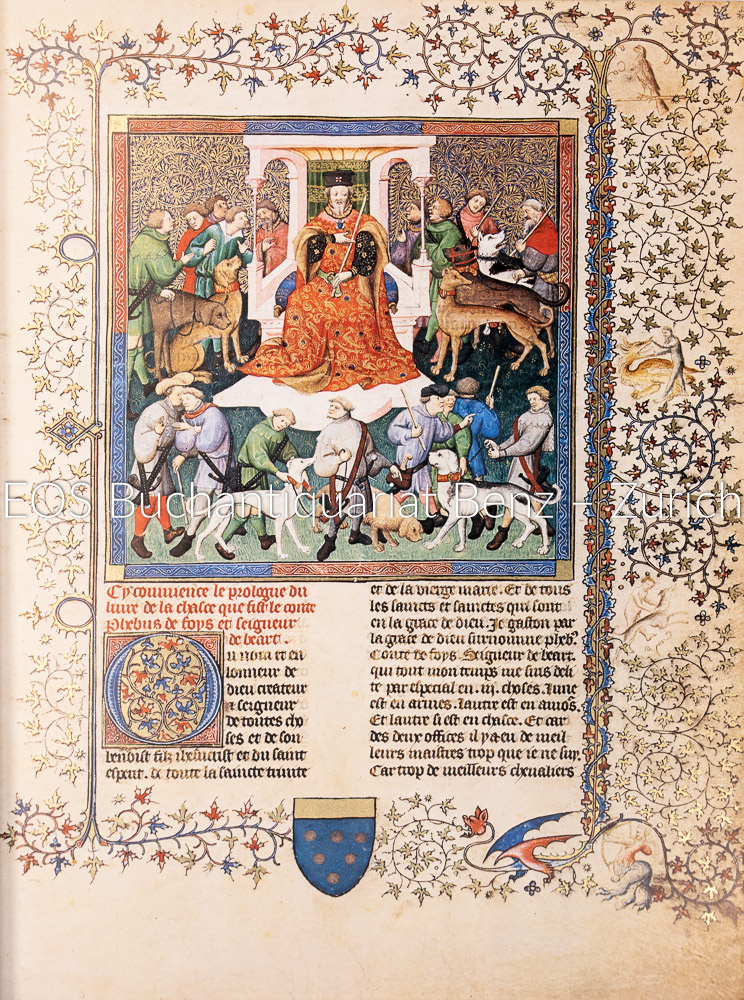 EOS Buchantiquariat Benz - Zürich
Cy commence le prologue du
liure de la chasce que fist le conte
phebus de foys et seigneur
de beart.
Ou nom et en
lonneur de
dieu createur
et seigneur
de toutes cho
ses et de son
benoist filz ihesucrist et du saint
esperit. de toute la saincte trinite
et de la vierge marie. Et de tous
les saincts et sainctes qui sont
en la grace de dieu. Je gaston par
la grace de dieu surnomme pheb9
Conte de foys. Seigneur de beart.
qui tout mon temps me suis deli
te par especial en .iij. choses. lune
est en armes. lautre est en amors.
Et lautre si est en chasce. Et car
des deux offices il y a eu de meil
leurs maistres trop que ie ne suy.
Car trop de meilleurs cheualiers